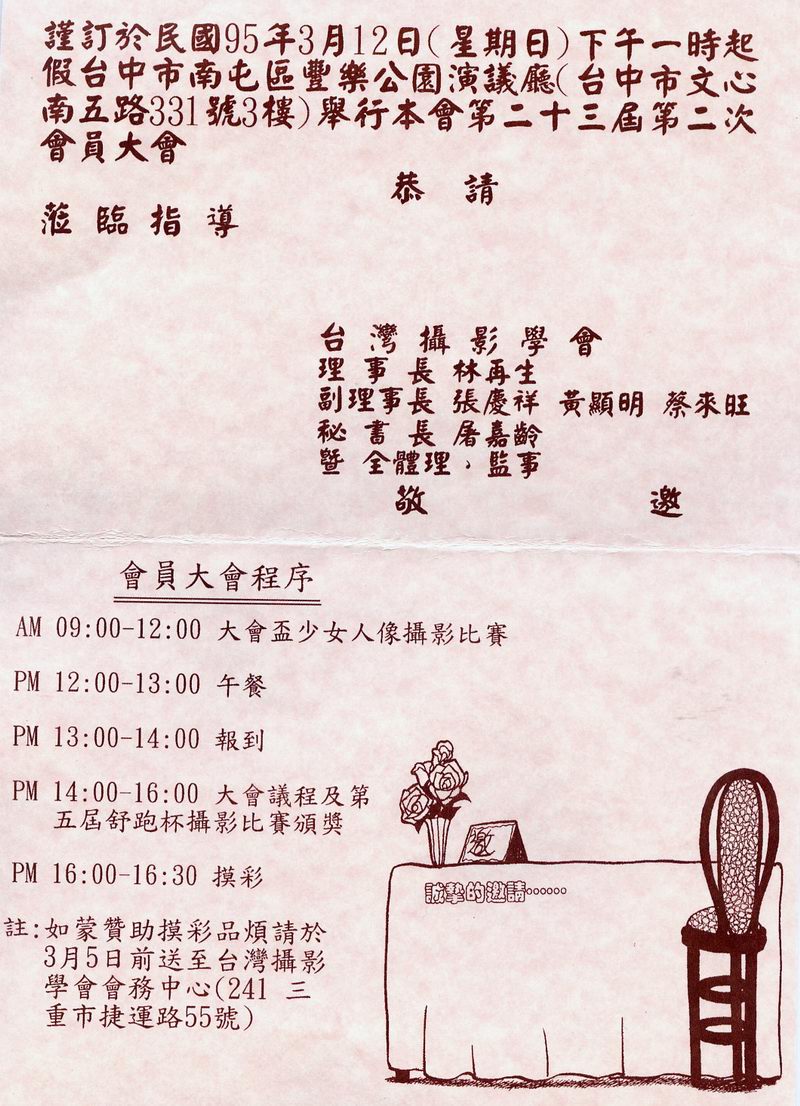 謹訂於民國95年3月12日(星期日)下午一時起
假台中市南屯區豐樂公園演議廳(台中市文心
南五路331號3樓)舉行本會第二十三屆第二次
會員大會
恭 請
蒞 臨 指 導
台 灣 攝 影 學 會
理 事 長 林再生
副理事長 張慶祥 黃顯明 蔡來旺
秘 書 長 屠嘉齡
暨 全體理，監事
敬 邀
會員大會程序
AM 09:00-12:00 大會盃少女人像攝影比賽
PM 12:00-13:00 午餐
PM 13:00-14:00 報到
PM 14:00-16:00 大會議程及第
五屆舒跑杯攝影比賽頒獎
PM 16:00-16:30 摸彩
註:如蒙贊助摸彩品煩請於
3月5日前送至台灣攝影
學會會務中心(241 三
重市捷運路55號)
邀
誠摯的邀請……